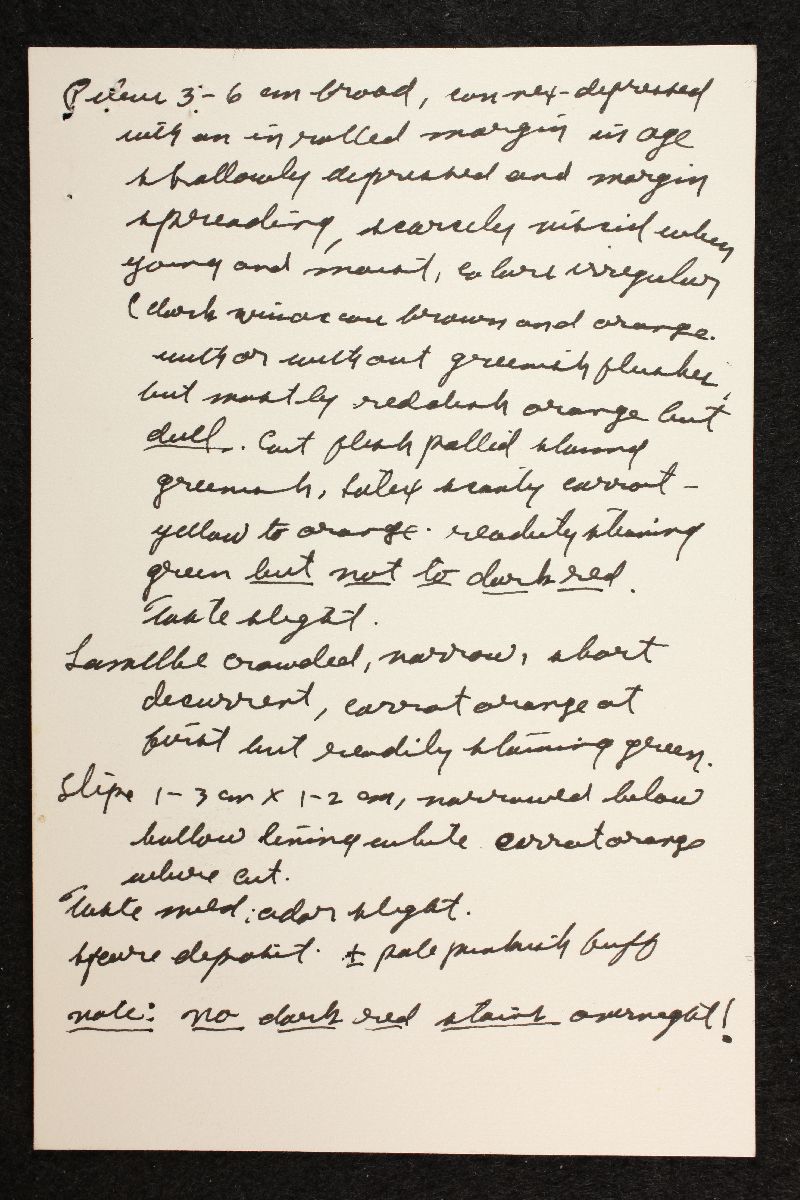 Pileus 3-6 cm broad, convex-depressed
with an inrolled margin in age
shallowly depressed and margin
spreading, scarcely viscid when
young and moist, colors irregular
(dark vinaceous brown and orange.
with or without greenish flushes,
but mostly reddish orange but
dull. Cut flesh pallid
greenish, latex scanty carrot-
yellow to orange. readily staining
green but not to dark red.
Taste slight.
Lamellae crowded, narrow, short
decurrent, carrot orange at
first but readily staining green.
Stipe 1-3 cm x 1-2 cm, narrowed below
hollow lining white carrot orange
where cut.
Taste mild; odor slight.
Spore deposit. ± pale pinkish buff
note: no dark red stains overnight!